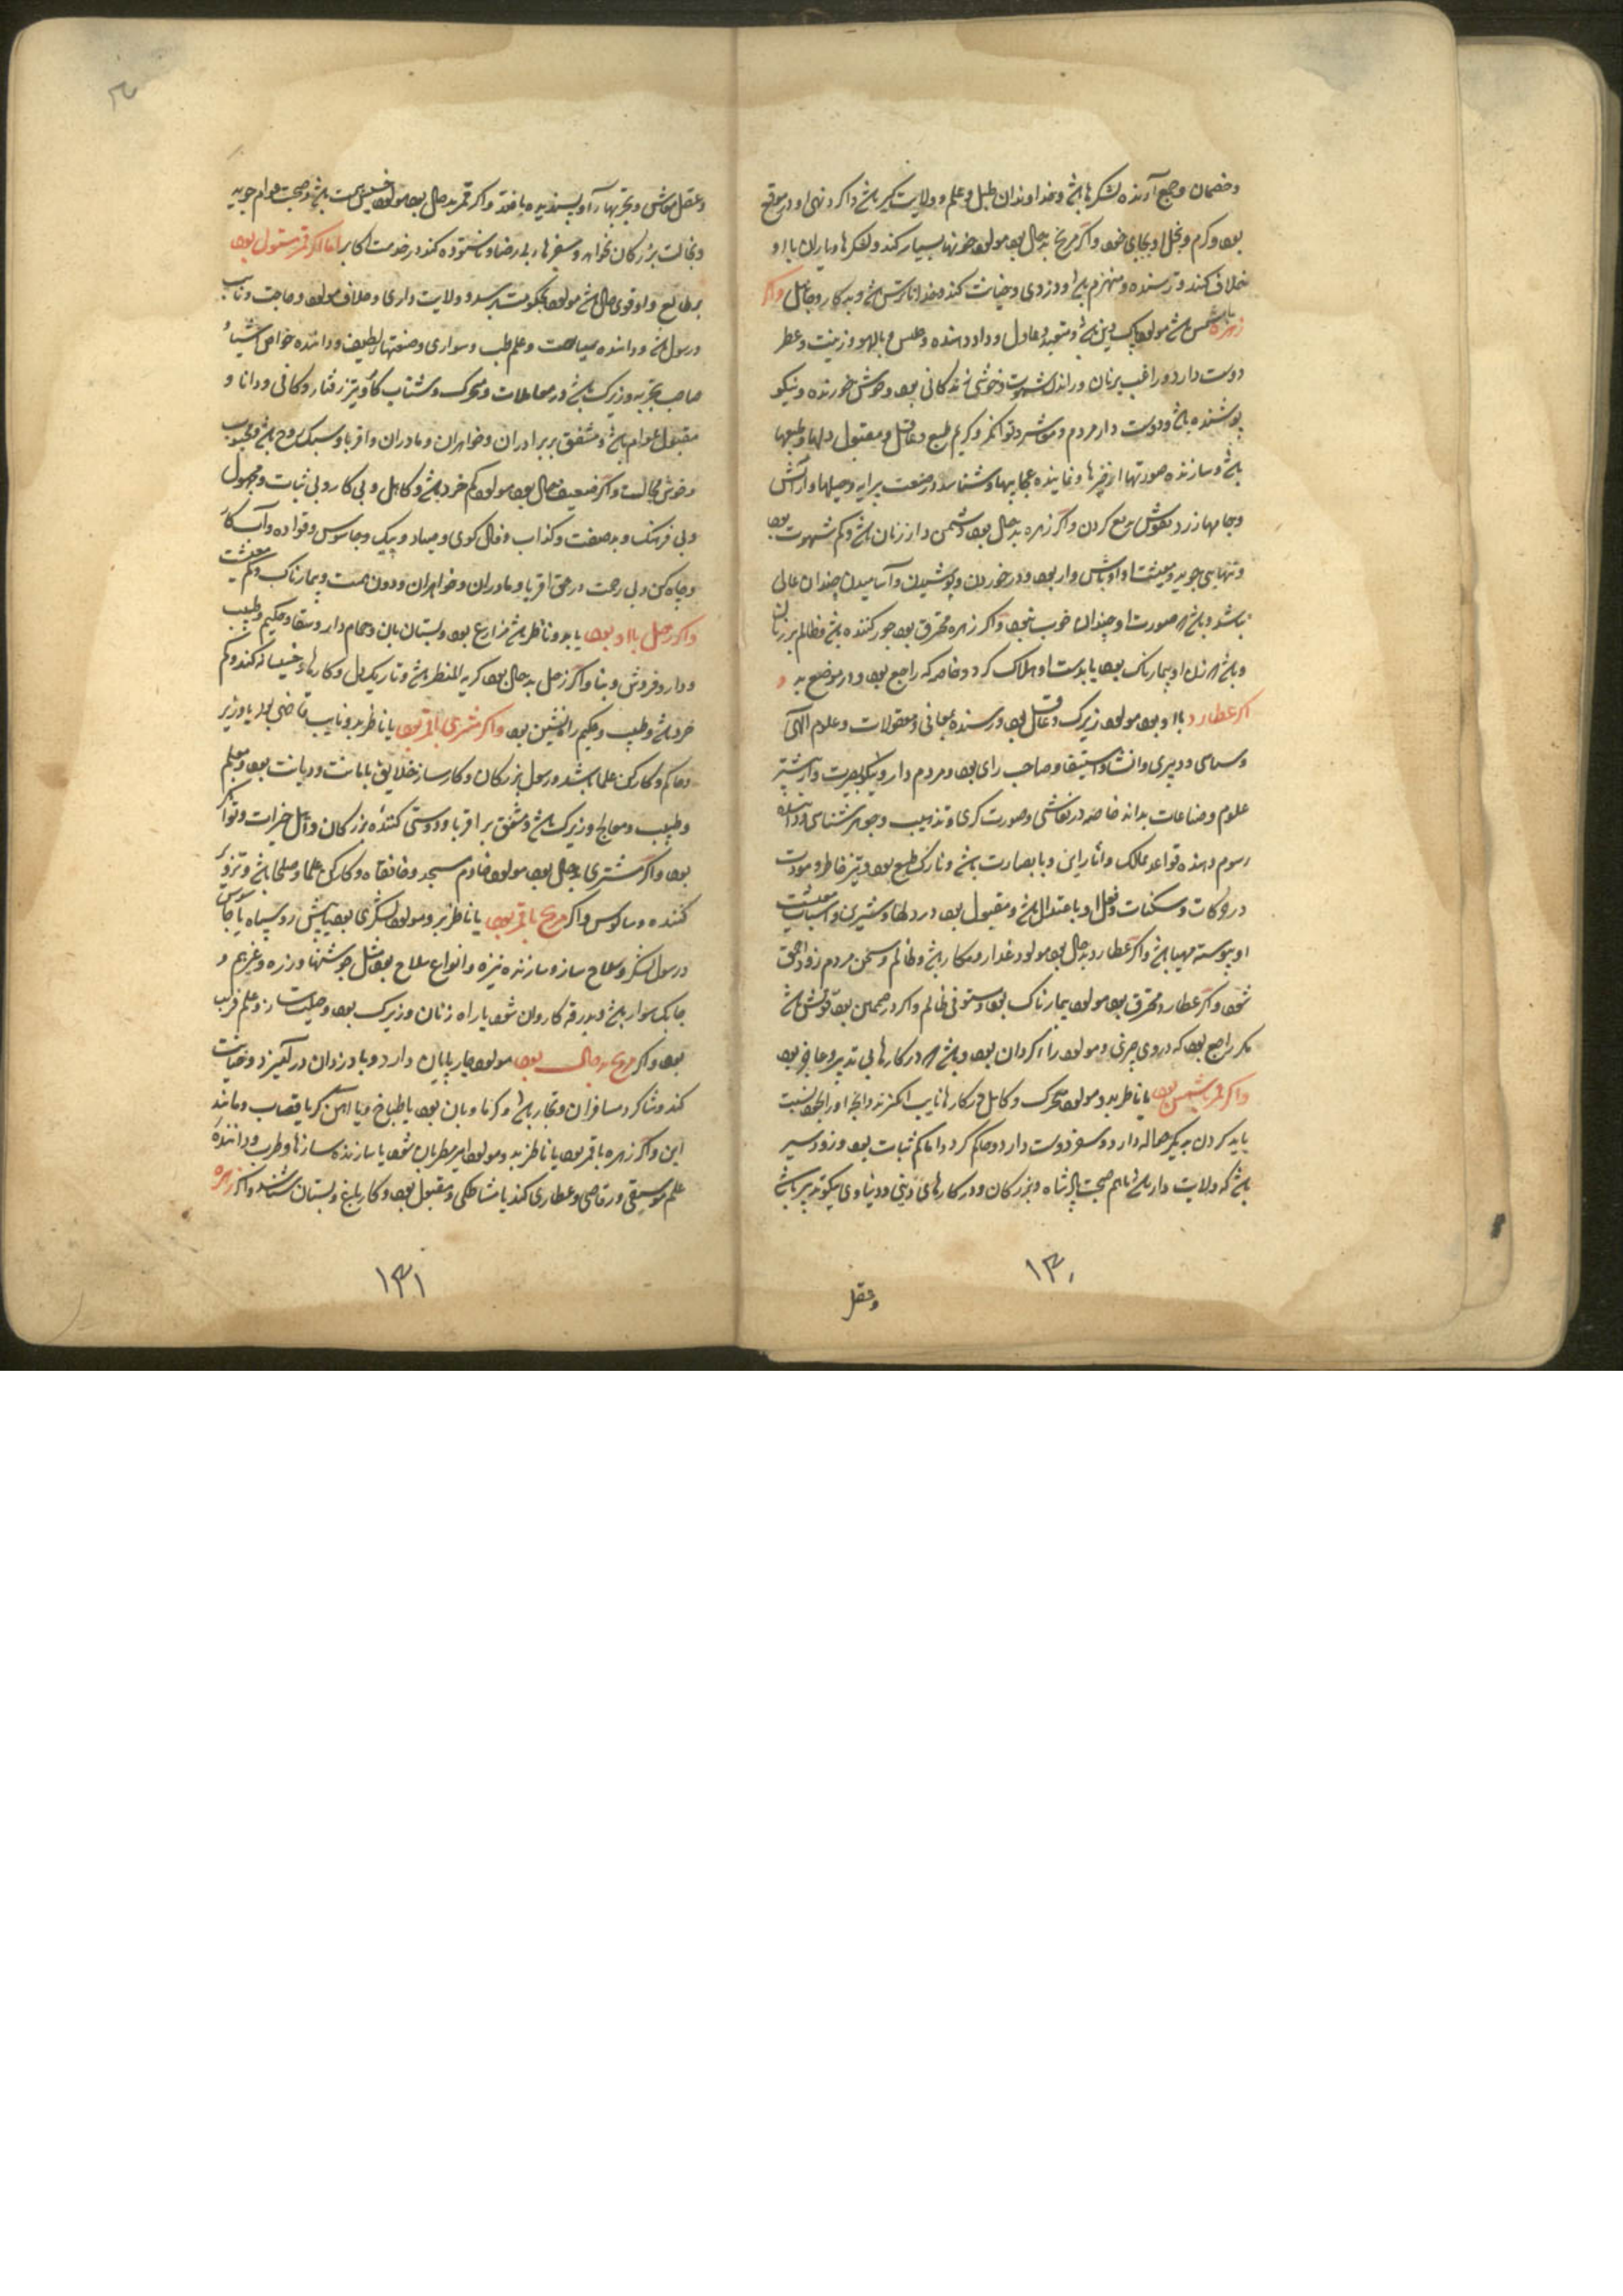 و خصمان و جمع آرنده لشکرها باشد و خداوندان طبل و علم و ولایت گیر باشد و اگر در نهی او در موقع
بود و کرم و بخل او بجای خود و اگر مریخ بد حال بود مولود خونها بسیار کند و لشکرها و یاران با او
خلاف کنند و ترسنده و منهزم باشد و دزدی و خیانت کند و خداناترس باشد و بدکار و جاهل واگر
زهره با شمس باشد مولود پاک دین باشد و متعبد و عادل و داد دهنده و مجلس و با لهو و زینت و عطر
دوست دارد و راغب بر زنان و راندن شهوت و خوشی زندگانی بود و خوش خورنده و نیکو
پوشنده باشد و دوست دار مردم و معاشر و توانگر و کریم طبع و عاقل و مقبول دلها و طبعها
باشد و سازنده صورتها از چیزها و نماینده عجایبها و شناسد در صنعت پیرایه و حیلها و آرایش
و جامها زرد و نقوش مرصع کردن و اگر زهره بد حال بود دشمن دار زنان باشد و کم شهوت بود
و تنهایی جوید و معیشت او اوباش وار بود و در خوردن و پوشیدن و آشامیدن چندان عالی
نباشد و باشد که صورت او چندان خوب نبود و اگر زهره محترق بود جور کننده باشد و ظالم بر زنان
و باشد که زن او بیمارناک بود یا بدست او هلاک گردد خاصه که راجع بود و در موضع بد و
اگر عطارد با او بود مولود زیرک و عاقل بود و رسنده بمعانی و معقولات و علوم الهی
و سماعی و دبیری و انشا و استیفا و صاحب رای بود و مردم دار و نیکو بصیرت و از بیشتر
علوم و صناعات بداند خاصه در نقاشی و صورت گری و تذهیب و جوهر شناسی و داننده
رسوم و نهنده قواعد ممالک و آثار این و با بصارت باشد و نازک طبع بود و تیز خاطر و مودت
در حرکات و سکنات و فعل او با عتدال باشد و مقبول بود در دلها و شیرین و اسباب معیشت
او پیوسته مهیا باشد و اگر عطارد بد حال بود مولود غدار و مکار باشد و ظالم و سخن مردم زود احمق
شود و اگر عطارد محترق بود مولود بیمارناک بود و مستوفی ظالم و اگر در صمیمین بود خوش باشد
مگر راجع بود که در وی چیزی و مولود را سر گردان بود و باشد که در کارها بی تدبیر و عاجز بود
واگر قمر با شمس بود یا ناظر بدو مولود متحرک و کامل در کارها نایب اکثر تدوایها او را بخود نسبت
باید کردن به یکی حواله دارد و سفر دوست دارد و حاکم گردد اما کم ثبات بود و زود سیر
باشد که ولایت دار باشد یا هم صحبت پادشاه و بزرگان و در کارهای دینی و دنیاوی نیکو تدبیر باشد
۱۳۰
وعقل
و عقل معاش و تجربها را و پسندیده یافته و اگر قمر بد حال بود مولود خسیس همت باشد و صحبت عوام جوید
و مجالست بزرگان نخواهد و سفرهای بی رضا و ناستوده کند در خدمت اکابر اما اگر قمر مستولی بود
بر طالع و او قوی حال باشد مولود بحکومت برسد و ولایت داری و خلاف مولود و حاجت و نایب
و رسول باشد و داننده سیاحت و علم طب و سواری و صنعتها لطیف و داننده خواص اشیا
صاحب تجربه و زیرک باشد در معاملات و متحرک و شتاب کار و تیز رفتار و کافی و دانا و
مقبول عوام باشد و مشفق بر برادران و خواهران و مادران و اقربا و سبک روح باشد و محبوب
و خوش مجالست و اگر ضعیف حال بود مولود کم خرد باشد و کاهل و بی کار و بی ثبات و مجهول
و بی فرهنگ و بد صفت و کذاب و فال گوی و صیاد و پیک و جاسوس و قواده و آب کار
و چاه کن و بی رحمت در حق اقربا و مادران و خواهران و دون همت و بیمارناک و کم معیشت
واگر زحل با او بود یا بدو ناظر باشد مزارع بود و بستان بان و حمام دار و سقا و حکیم و طبیب
و دارو فروش و بنا و اگر زحل بد حال بود کریه المنظر باشد و تاریک دل و کارهاء خسیسانه کند و کم
خرد باشد و طبیب و حکیم راه نشین بود واگر مشتری با قمر بود یا ناظر بدو نایب قاضی بود یا وزیر
و حاکم و کارکن علما باشد و رسول بزرگان و کار ساز خلایق با مانت و دیانت بود و معلم
و طبیب و معالج و زیرک باشد و مشفق بر اقربا و دوستی کننده بزرگان و اهل خیرات و توانگر
بود و اگر مشتری بد حال بود مولود خادم مسجد و خانقاه و کارکن علما و صلحا باشد و تزویر
کننده و سالوس واگر مریخ با قمر بود یا ناظر بدو مولود لشکری بود یا پیش رو سپاه یا جاسوس
و رسول لشکر و سلاح ساز و سازنده نیزه و انواع سلاح بود مثل جوشنها و زره و غیرهم و
چابک سوار باشد و بدرقه کاروان شود یا راه زنان و زیرک بود و حیلت ساز و علم غریب
بود و اگر مریخ بد حال بود مولود چارپایان دارد و با دزدان در آمیزد و خیانت
کند و شاگرد مسافران و تجار باشد و گرماوه بان بود یا طباخ و یا آهن گر یا قصاب و مانند
این و اگر زهره با قمر بود یا ناظر بدو مولود امیر مطربان شود یا سازنده سازها و طرب و داننده
علم موسیقی و رقاصی و عطاری کند یا مشاطگی و مقبول بود و کار باغ و بستان شناسد و اگر زهره
۱۳۱